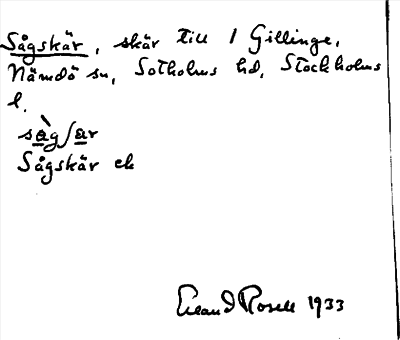 Sågskär, skär till 1 Gillinge,
Nämdö sn, Sotholms hd, Stockholms
l.
sàgʃar
Sågskär ek
Erland Rosell 1933